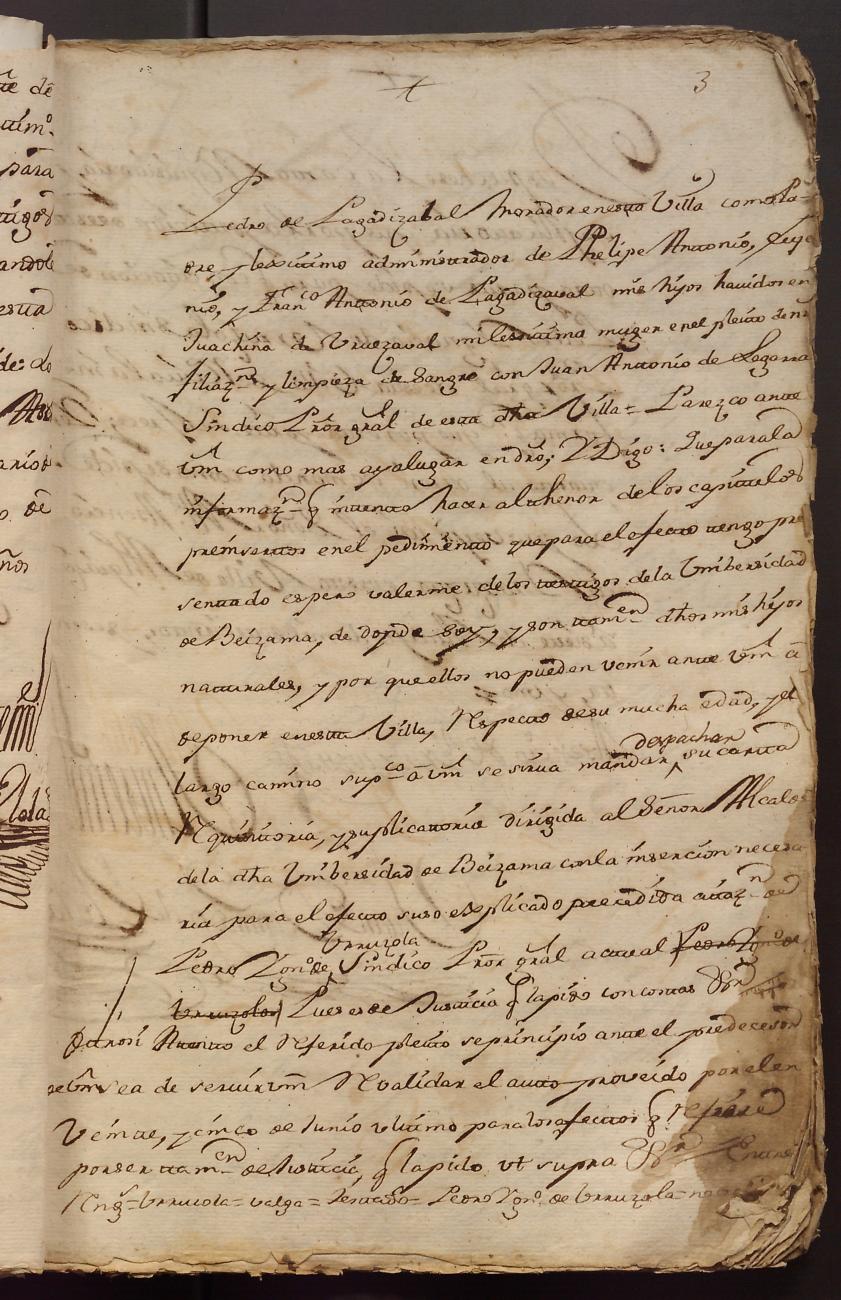 3
Pedro de Lagadizabal Morador en esta Villa como Pa-
dre, y lexitimo administrador de Phelipe Antonio,
nio, y Franco Antonio de Lagadizaval mis hijos havidos en
Juachina de Vruezaval mi lexitima muger en el pleito de
filiazn y limpieza de Sangre con Juan Antonio de Legarra
Sindico Pror gral de esta dha Villa = Parezco ante
Vm como mas aya lugar en dro; Y Digo: Que para la
informazn q intento hacer al thenor de los capitulos
preinsertos en el pedimento que para el efecto tengo pre
sentado espero valerme de los testigos de la Vnibersidad
de Beizama, de donde soy, y son tamen dhos mis hijos
naturales, y por que ellos no pueden venir ante Vm á
deponer en esta Villa, Respecto de su mucha edad, y el
despachar
largo camino supco á Vm se sirva mandar su carta
Requisitoria, y suplicatoria dirigida al Señor Alcalde
de la dha Vnibersidad de Beizama con la insercion necesa
ria para el efecto suso explicado precedida citazn de
Vrruzola
Pedro Ygno de Sindico Pror gral actual Pedro Ygno de
Vrruzola Pues es de Justicia q la pido con costas
Otrosi Atento el Referido pleito se principio ante el predecesor
de Vm sea de servir Vm Rvalidar el auto proveido por el en
Veinte, y cinco de Junio vltimo para los efectos q Refiere
por ser tamen de Justicia, q la pido vt supra Entre
Rngs = Vrruzola = valga = Testado = Pedro Ygno de Vrruzola = no